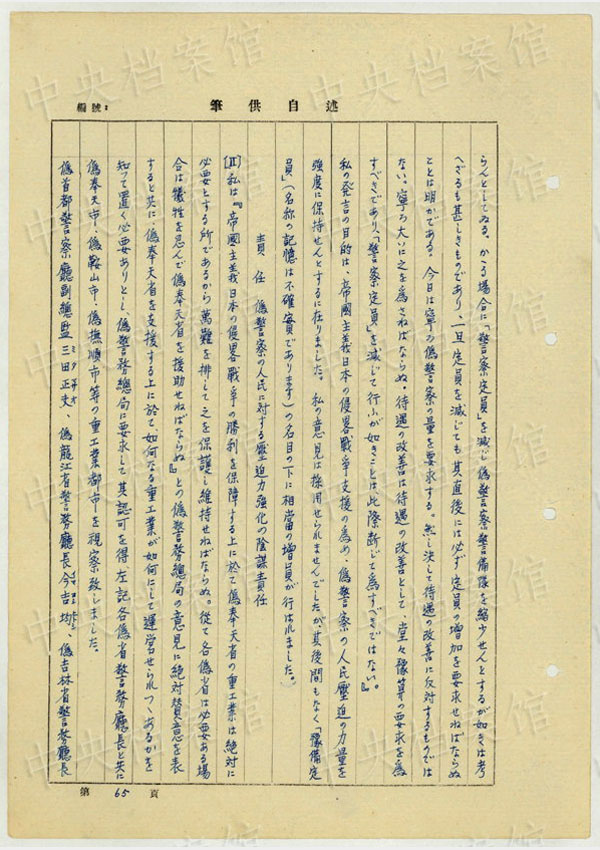 編號:
筆供自述
らんとしてゐる。かゝる場合に「警察定員」を減じ偽警察警備隊を縮少せんとするが如きは考
へざるも甚しきものであり、一旦定員を減じても其直後には必ず定員の増加を要求せねばならぬ
ことは明かである。今日は寧ろ偽警察の量を要求する。然し決して待遇の改善に反対するものでは
ない、寧ろ大いに之を為さねばならぬ。待遇の改善は待遇の改善として、堂々豫算の要求を為
すべきであり、「警察定員」を減じて行ふが如きことは此際断じて為すべきではない。』
私の発言の目的は、帝國主義日本の侵畧戰爭支援の為め、偽警察の人民圧迫の力量を
強度に保持せんとするに在りました。私の意見は採用せられませんでしたが、其後間もなく「豫備定
員」(名称の記憶は不確実であります)の名目の下に相當の増員が行はれました。
責任 偽警察の人民に対する壓迫力強化の陰謀責任
[Ⅱ]私は『帝國主義日本の侵畧戰爭の勝利を保障する上に於て偽奉天省の重工業は絶対に
必要とする所であるから萬難を排して之を保護し維持せねばならぬ。従て各偽省は必要ある場
合は犠牲を忍んで偽奉天省を援助せねばならぬ』との偽警務總局の意見に絶対賛意を表
すると共に偽奉天省を支援する上に於て、如何なる重工業が如何にして運営せられつゝあるかを
知って置く必要ありとし、偽警務總局に要求して其認可を得、左記各偽省警務廳長と共に
偽奉天市、偽鞍山市、偽撫順市等の重工業都市を視察致しました。
偽首都警察廳副總監三田正夫、偽龍江省警務廳長今吉均、偽吉林省警務廳長
第 65 頁
中央档案馆